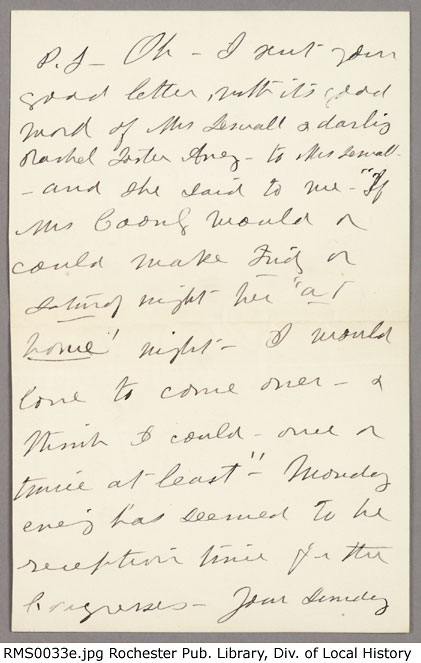 P.S. - Oh - I sent your
good letter, with its good
word of Mrs Sewall & darling
Rachel Foster Avery - to Mrs Sewall -
- and she said to me - "If
Mrs Coonley would or
could make Friday or
Saturday night her "at
home" night - I would
love to come over - &
think I could - once or
twice at least" - Monday
evening has seemed to be
reception time for the
Congresses - Your Sunday
RMS0033e.jpg Rochester Pub. Library, Div. of Local History